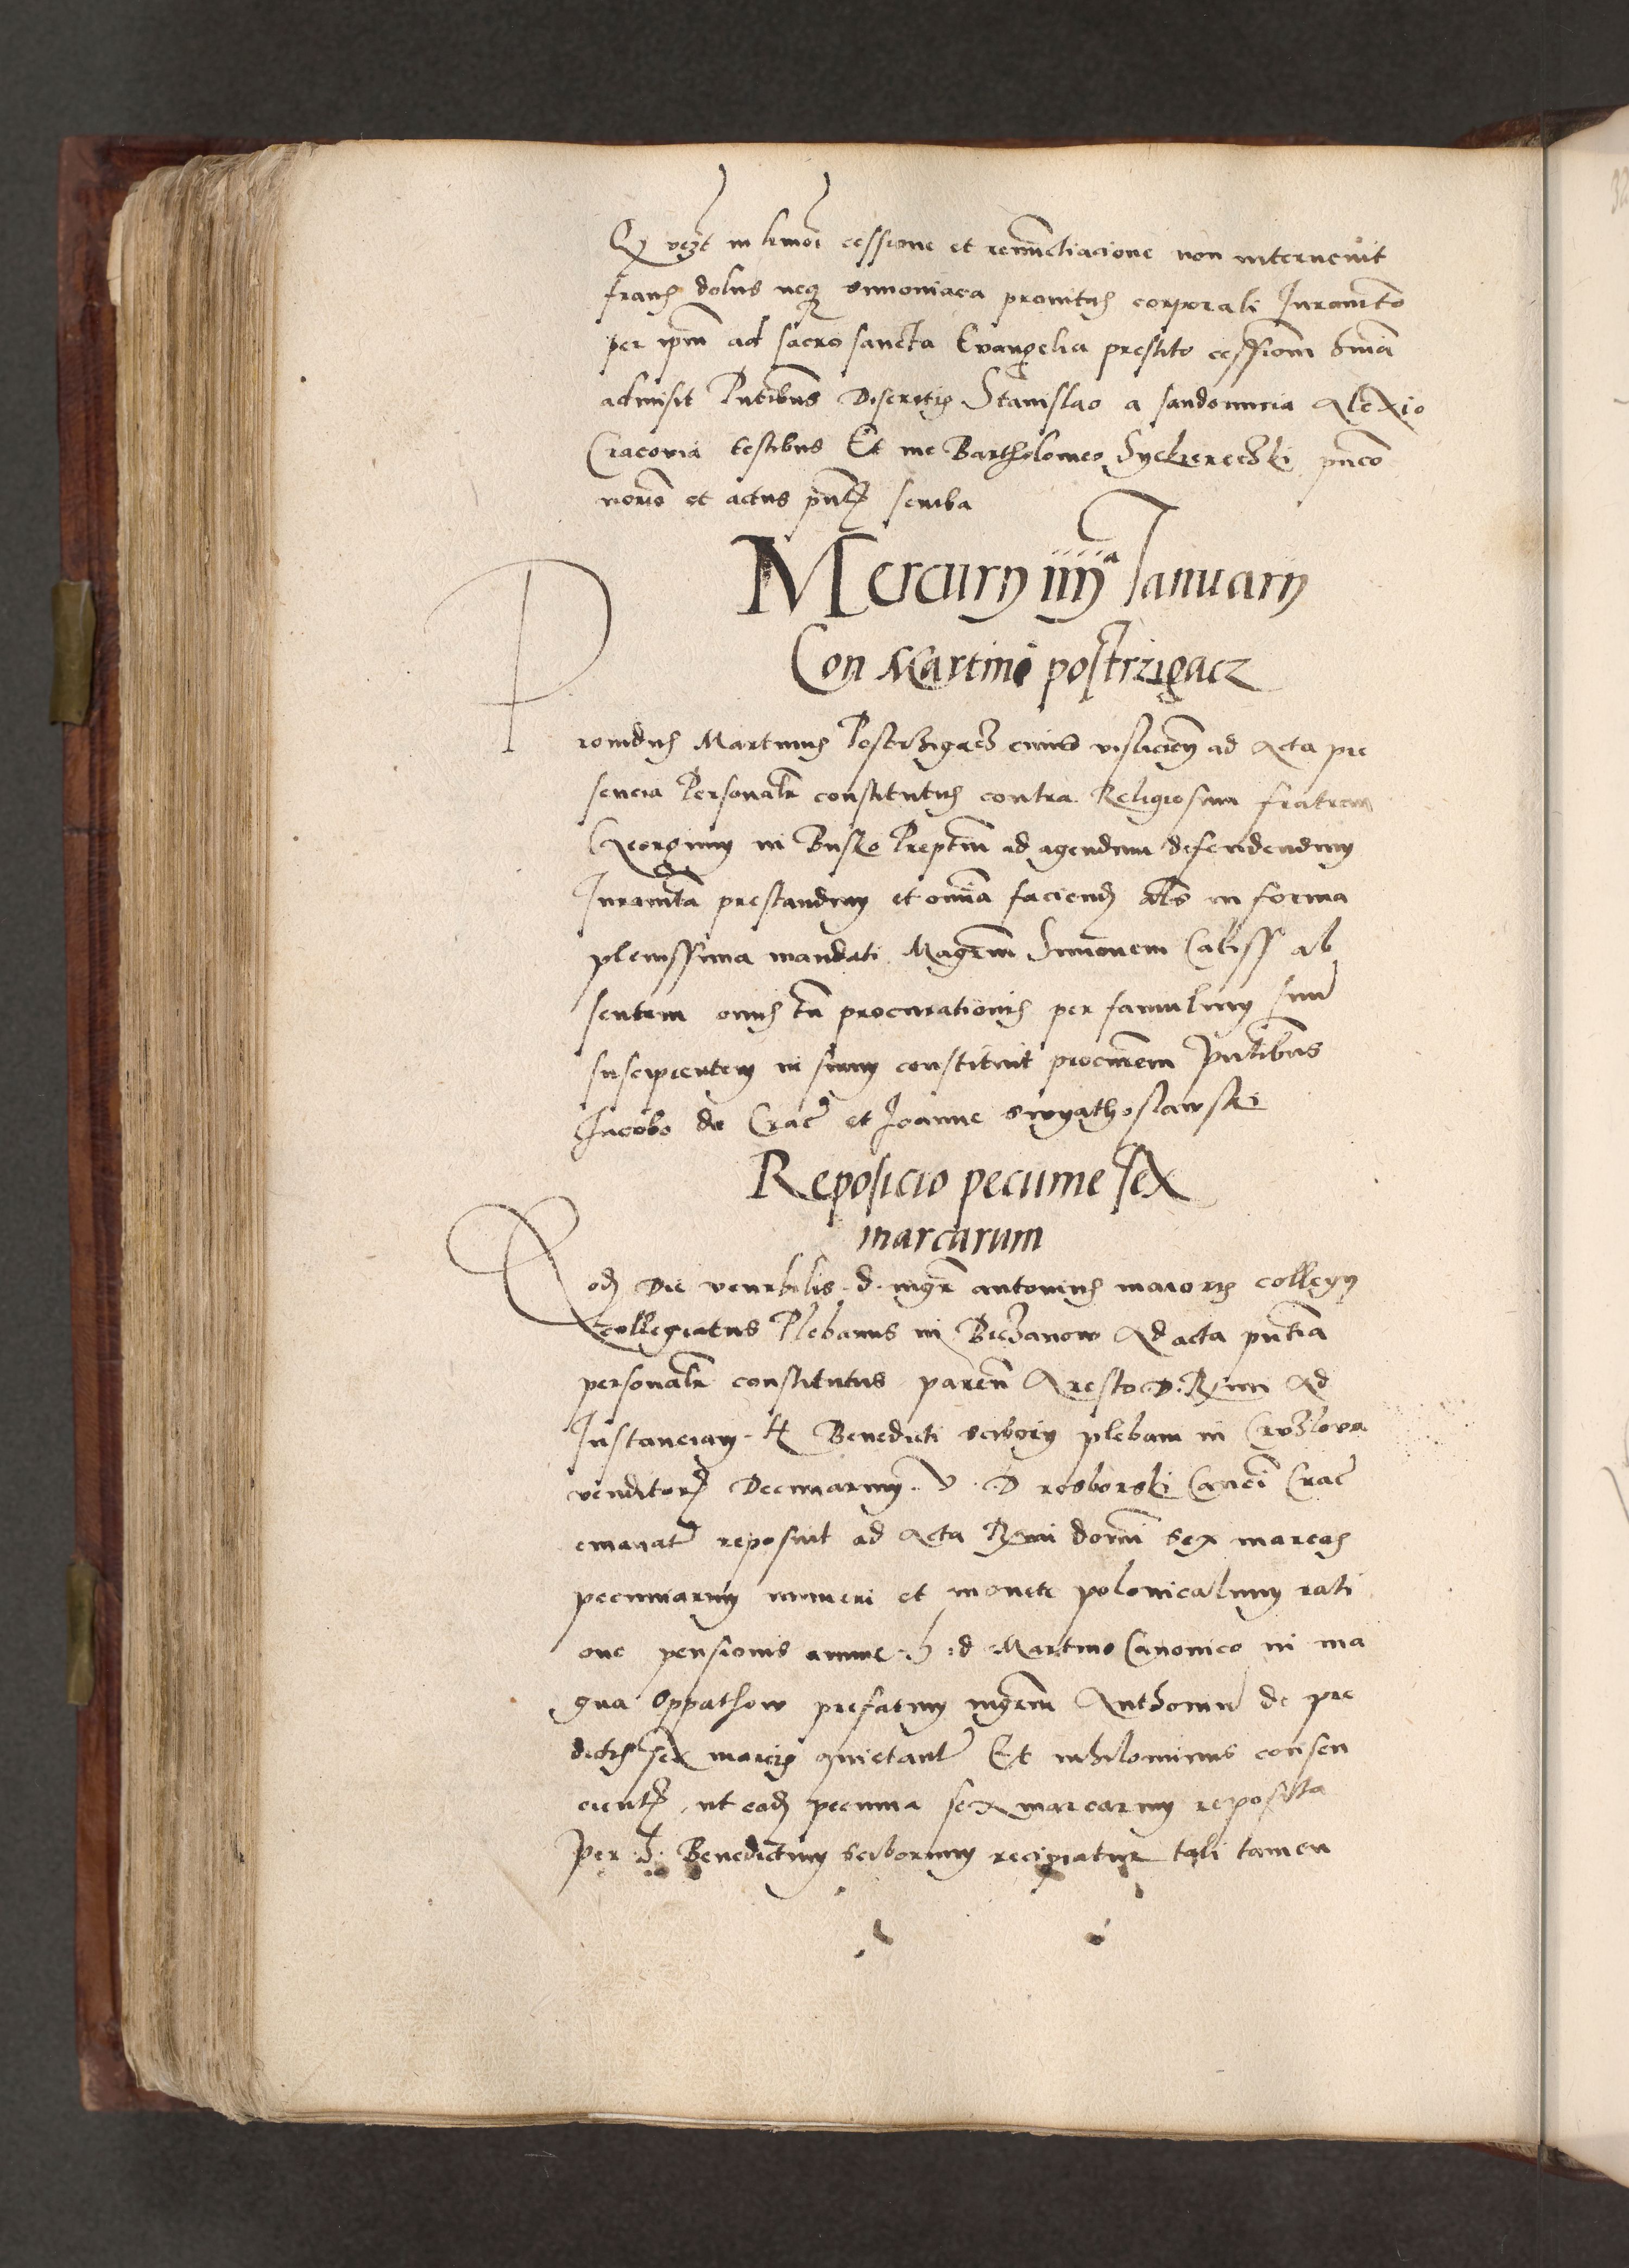 in hmoi cessione et renunctiacione non intervenit
fraus dolus neq simoniaca pravitas corporali Iuramto
per ipm ad sacro sancta Evangelia prestito cessionem
admisit Pntibus Discretis Stanislao a sandomiria Alexio
Cracovia testibus Et me Bartholomeo
et actus pntis scriba
Mercurij iiij a Januarij
Con Martini postrzigacz
Providus Martinus Postrzigacz civis vislicien ad Acta pre
sencia Personalr constitutus contra Religiosum fratrem
Georgium in Busko Preptm ad agendum defendendum
Iuramta prestandum et omia faciend als in forma
plenissima mandati Magrm Simonem Caliss ab
sentem onus tn procurationis per famulum suu
suscipientem in suum constituit procurem Pntibus
Jacobo de Crac et Joanne swyathoslawski
Reposicio pecunie sex
marcarum
Eod Die venrbilis d. mgr antonius maioris collegij
collegiatus Plebanus in Biczanow Ad acta pntia
personalr constitutus paren Aresto D. Rmi Ad
Instanciam H Benedicti sciborij plebani in Cruzlova
venditor Decimarum V. D rosborski Canci Crac
emanat reposuit ad Acta Rmi domi sex marcas
pecuniarum numeri et monete polonicalium rati
one pensionis annue h. d Martino Canonico in ma
gna Oppathow prefatum mgrm Anthoniu de pre
dictis sex marcis quietant Et nihilominus consen
cient, ut ead pecunia sex marcarum reposita
per h. Benedictum sciborium recipiatur tali tamen